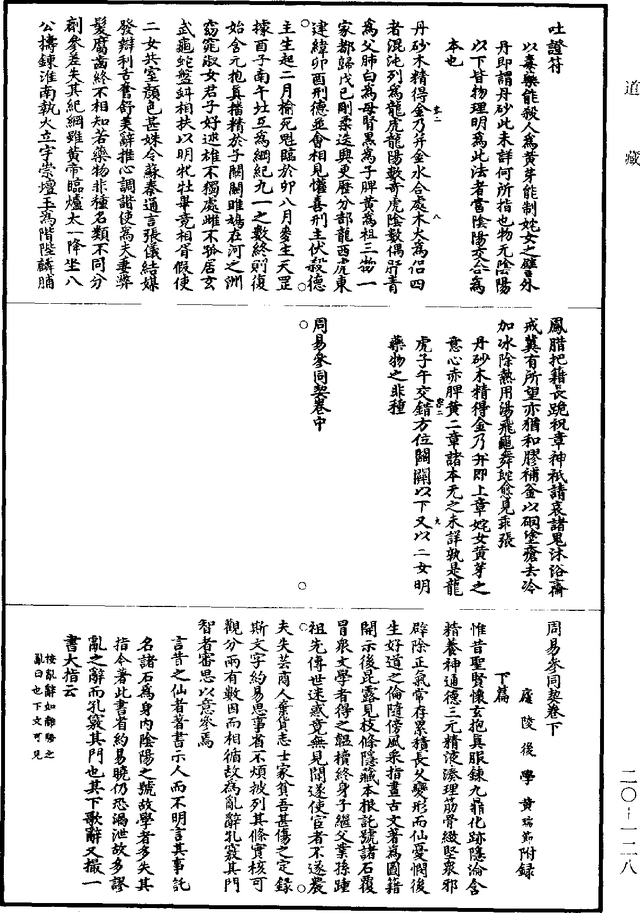 道藏
吐證符
以毒藥能殺人為黃芽能制姹女之譬外
丹即謂丹砂此未詳何所指也物无陰陽
以下皆物理明為此法者當陰陽交合為
本也
丹砂木精得金乃并金水合處木火為侣四
者混沌列為龍虎龍陽數奇虎陰數偶肝青
為父肺白為母腎黑為子脾黃為祖三物一
家都歸戊己剛柔迭興更歷分部龍西虎東
建緯卯酉刑德並會相見懽喜刑主伏殺德
主生起二月榆死魁臨於卯八月麥生天罡
據酉子南午北互為綱紀九一之數終則復
始含元抱真播精於子關關雎鳩在河之洲
窈窕淑女君子好逑雄不獨處雌不孤居玄
武龜蛇盤虯相扶以明牝牡畢竟相胥假使
二女共室顏色甚姝令蘇秦通言張儀結媒
發辯利舌奮舒美辭推心調諧使為夫妻弊
髮腐齒終不相知若藥物非種名類不同分
劑參差失其紀綱雖黃帝臨爐太一降坐八
公擣鍊淮南執火立宇崇壇玉為階陛麟脯
鳳腊把籍長跪祝章神祇請哀諸鬼沐浴齋
戒冀有所望亦猶和膠補釜以硇塗瘡去冷
加冰除熱用湯飛龜舞蛇愈見乖張
丹砂木精得金乃并即上章姹女黃芽之
意心赤脾黃二章諸本元之未詳孰是龍
虎子午交錯方位關關以下又以二女明
藥物之非種
周易參同契卷中
周易參同契卷下
廬陵後學黃瑞節附録
下篇
惟昔聖賢懷玄抱真服鍊九鼎化跡隱淪含
精養神通德三元精液湊理筋骨緻堅衆邪
辟除正氣常存累積長久變形而仙憂憫後
生好道之倫隨傍風采指畫古文著為圖籍
開示後昆露見枝條隱藏本根託號諸石覆
冒衆文學者得之韞櫝終身子繼父業孫踵
祖先傳世迷惑竟無見聞遂使宦者不遂農
夫失芸商人棄貨志士家貧吾甚傷之定録
斯文字約易思事省不煩披列其條實核可
觀分兩有數因而相循故為亂辭孔竅其門
智者審思以意參焉
言昔之仙者著書示人而不明言其事託
名諸石為身内陰陽之號故學者多失其
指今著此書者約易曉仍恐漏泄故多謬
亂之辭而孔竅其門也其下歌辭又撮一
書大指云
按亂辭如離騷之
亂曰也下文可見
二〇-一二八